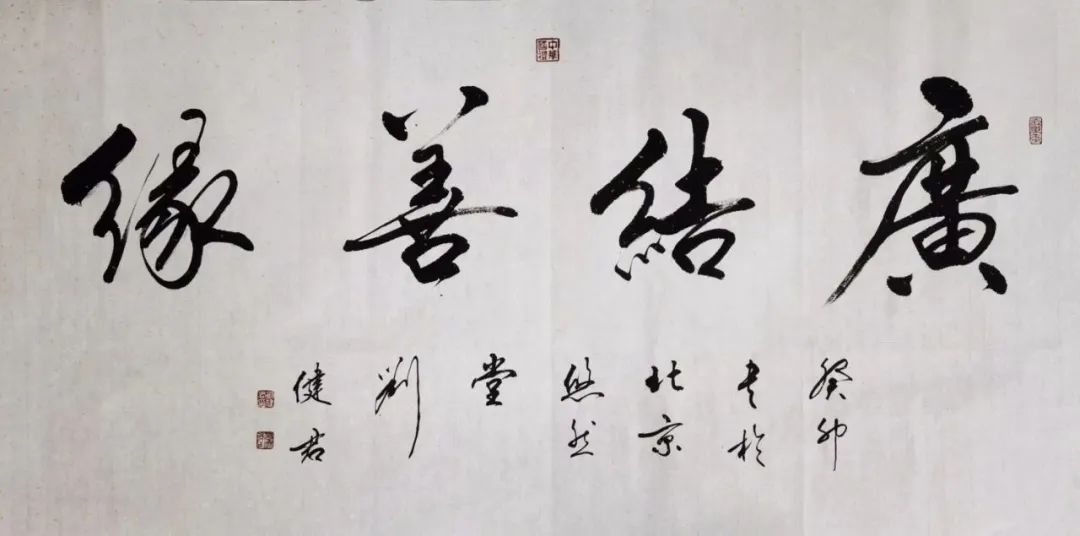 廣結善緣
癸卯
書於
北京
悠然
堂
劉
健君